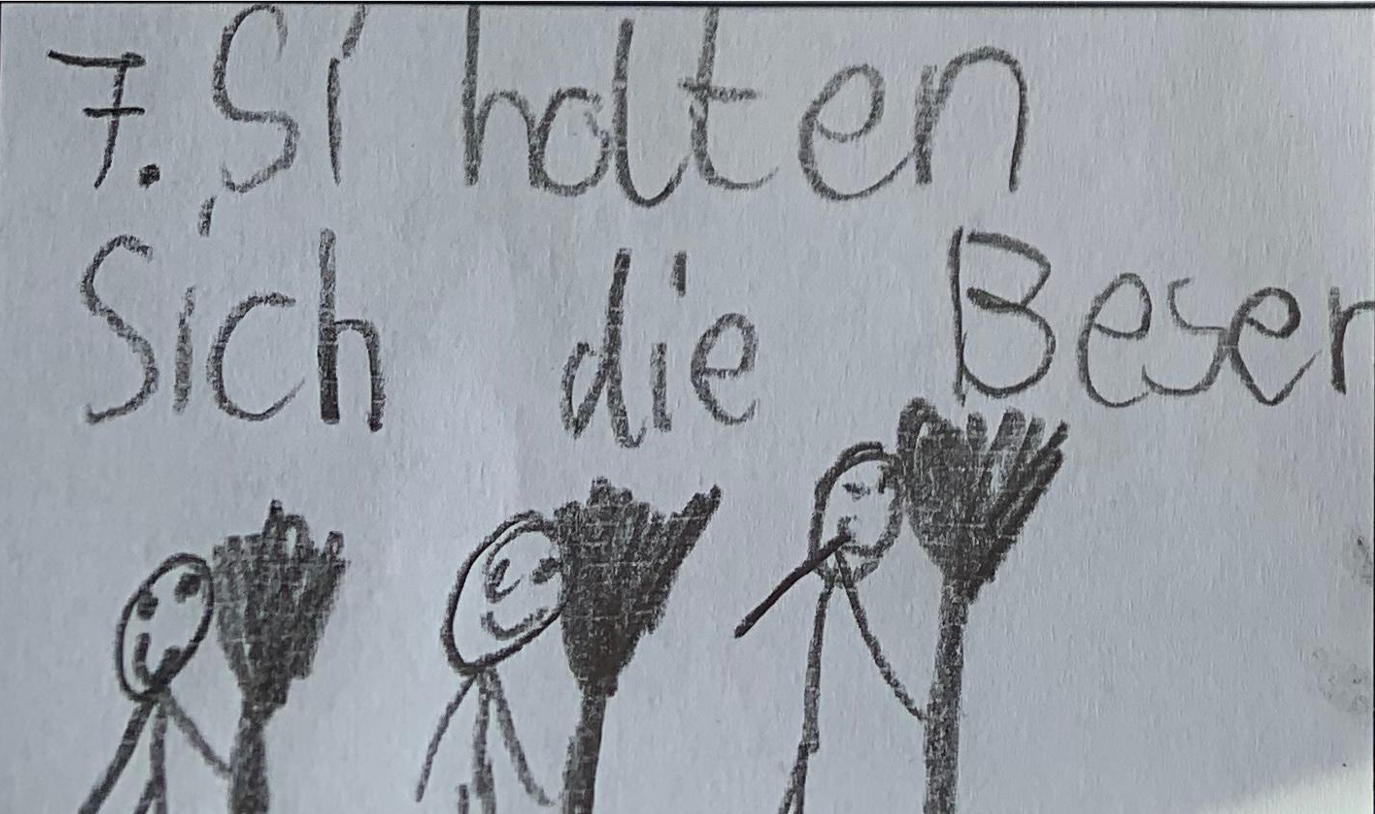 7. Si holten
Sich die Besen